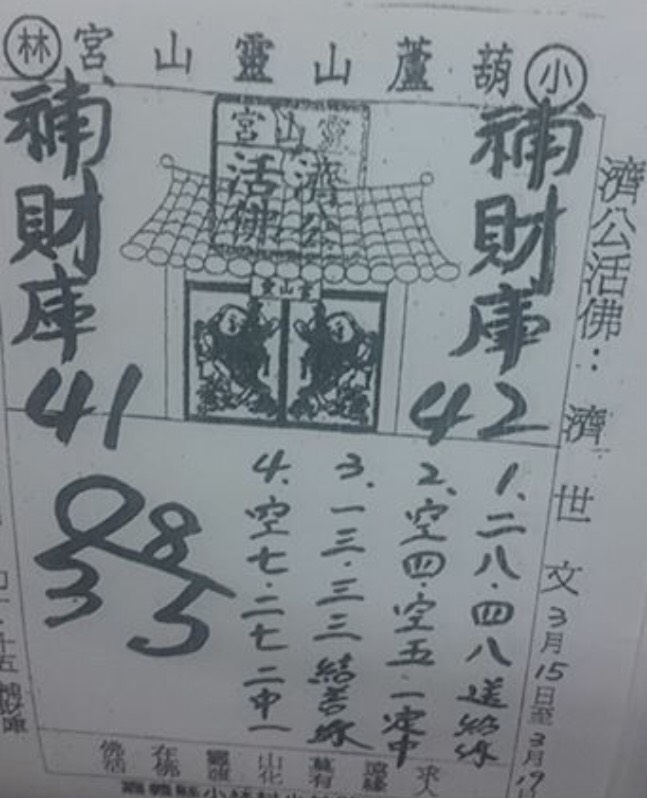 小
葫蘆山靈山宮
林
濟公活佛：濟世文
3月15日至3月19日
補財庫
42
補財庫
41
靈山宮
濟公
活佛
靈山宮
1、二八．四八送如緣
2、空四．空五．一連中
3、一三．三三結善緣
4、空七．二七二中一
08
35
求人
遠緣
有
山化
在佛
佛活